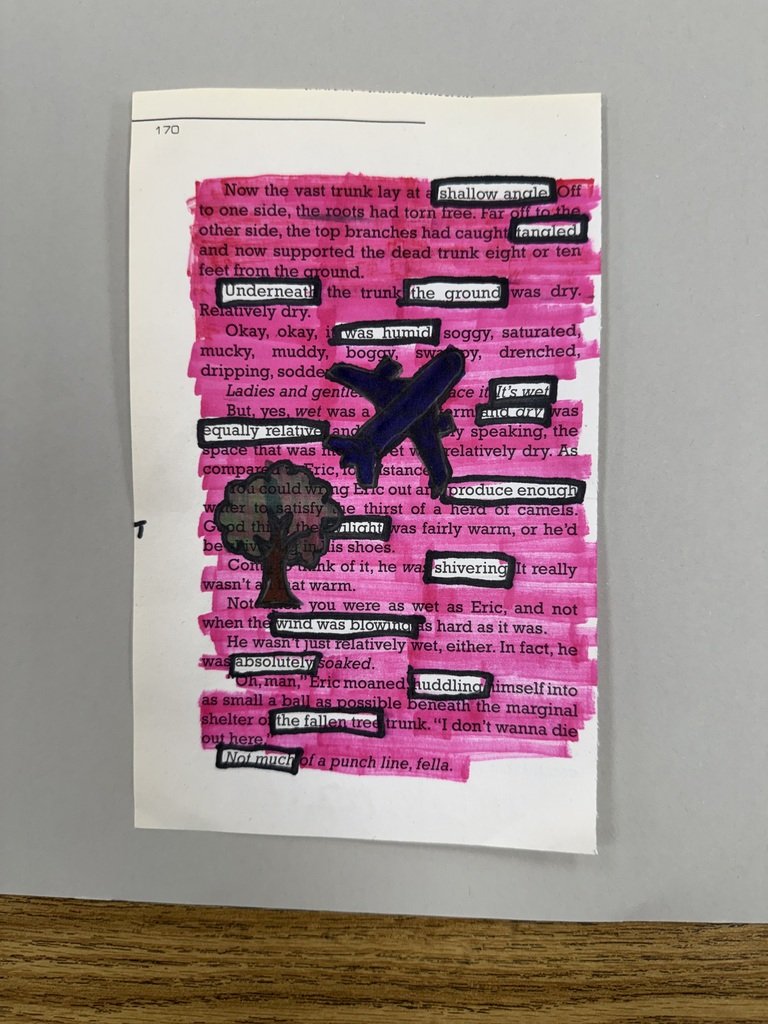 170
Now the vast trunk lay at a shallow angle. Off
to one side, the roots had torn free. Far off to the
other side, the top branches had caught, tangled,
and now supported the dead trunk eight or ten
feet from the ground.
Underneath the trunk, the ground was dry.
Relatively dry.
Okay, okay, it was humid, soggy, saturated,
mucky, muddy, boggy, swampy, drenched,
dripping, sodde
Ladies and gentle ace it: It's wet.
But, yes, wet was a rm and dry was
equally relative, and y speaking, the
space that was wet was relatively dry. As
compared to Eric, for instance.
You could wring Eric out and produce enough
water to satisfy the thirst of a herd of camels.
Good thing the night was fairly warm, or he'd
be shivering in his shoes.
Come to think of it, he was shivering. It really
wasn't all that warm.
Not when you were as wet as Eric, and not
when the wind was blowing as hard as it was.
He wasn't just relatively wet, either. In fact, he
was absolutely soaked.
"Oh, man," Eric moaned, huddling himself into
as small a ball as possible beneath the marginal
shelter of the fallen tree trunk. "I don't wanna die
out here."
Not much of a punch line, fella.
T